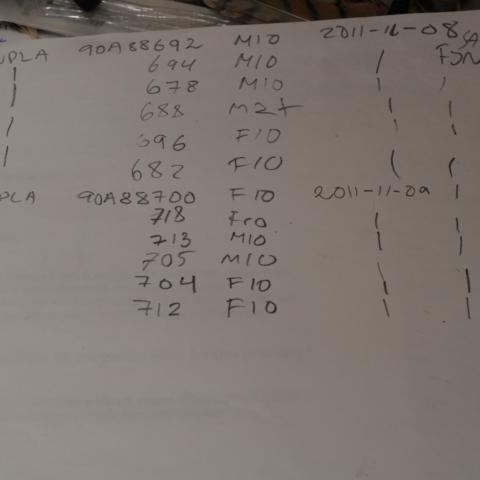 90A88692 M10 2011-11-08
UPLA 694 M10 | FSN
| 678 M10 | |
| 688 M2+ | |
| 696 F10 | |
| 682 F10 | |
PLA 90A88700 F10 2011-11-09 |
718 F10 | |
713 M10 | |
705 M10
704 F10 | |
712 F10 | |